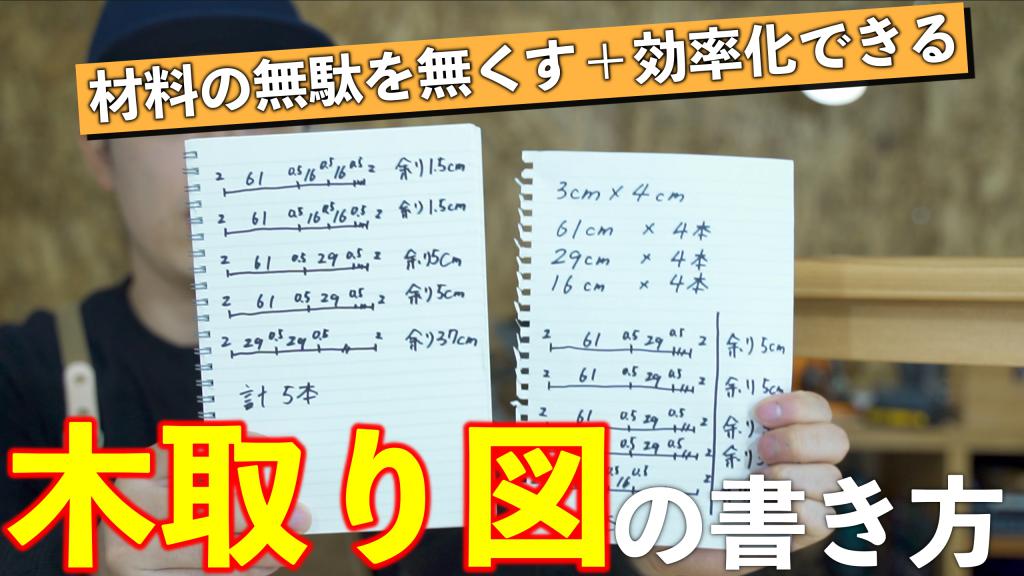 材料の無駄を無くす＋効率化できる
2 61 0.5 16 0.5 16 0.5 2 余り1.5cm
2 61 0.5 16 0.5 16 0.5 2 余り1.5cm
2 61 0.5 29 0.5 2 余り5cm
2 61 0.5 29 0.5 2 余り5cm
2 29 0.5 29 0.5 2 余り37cm
計 5本
3cm × 4cm
61cm × 4本
29cm × 4本
16cm × 4本
2 61 0.5 29 0.5 2 余り5cm
2 61 0.5 29 0.5 2 余り5cm
2 61 0.5 29 0.5 2 余り
0.5 29 0.5 2 余り
16 0.5 2
木取り図の書き方